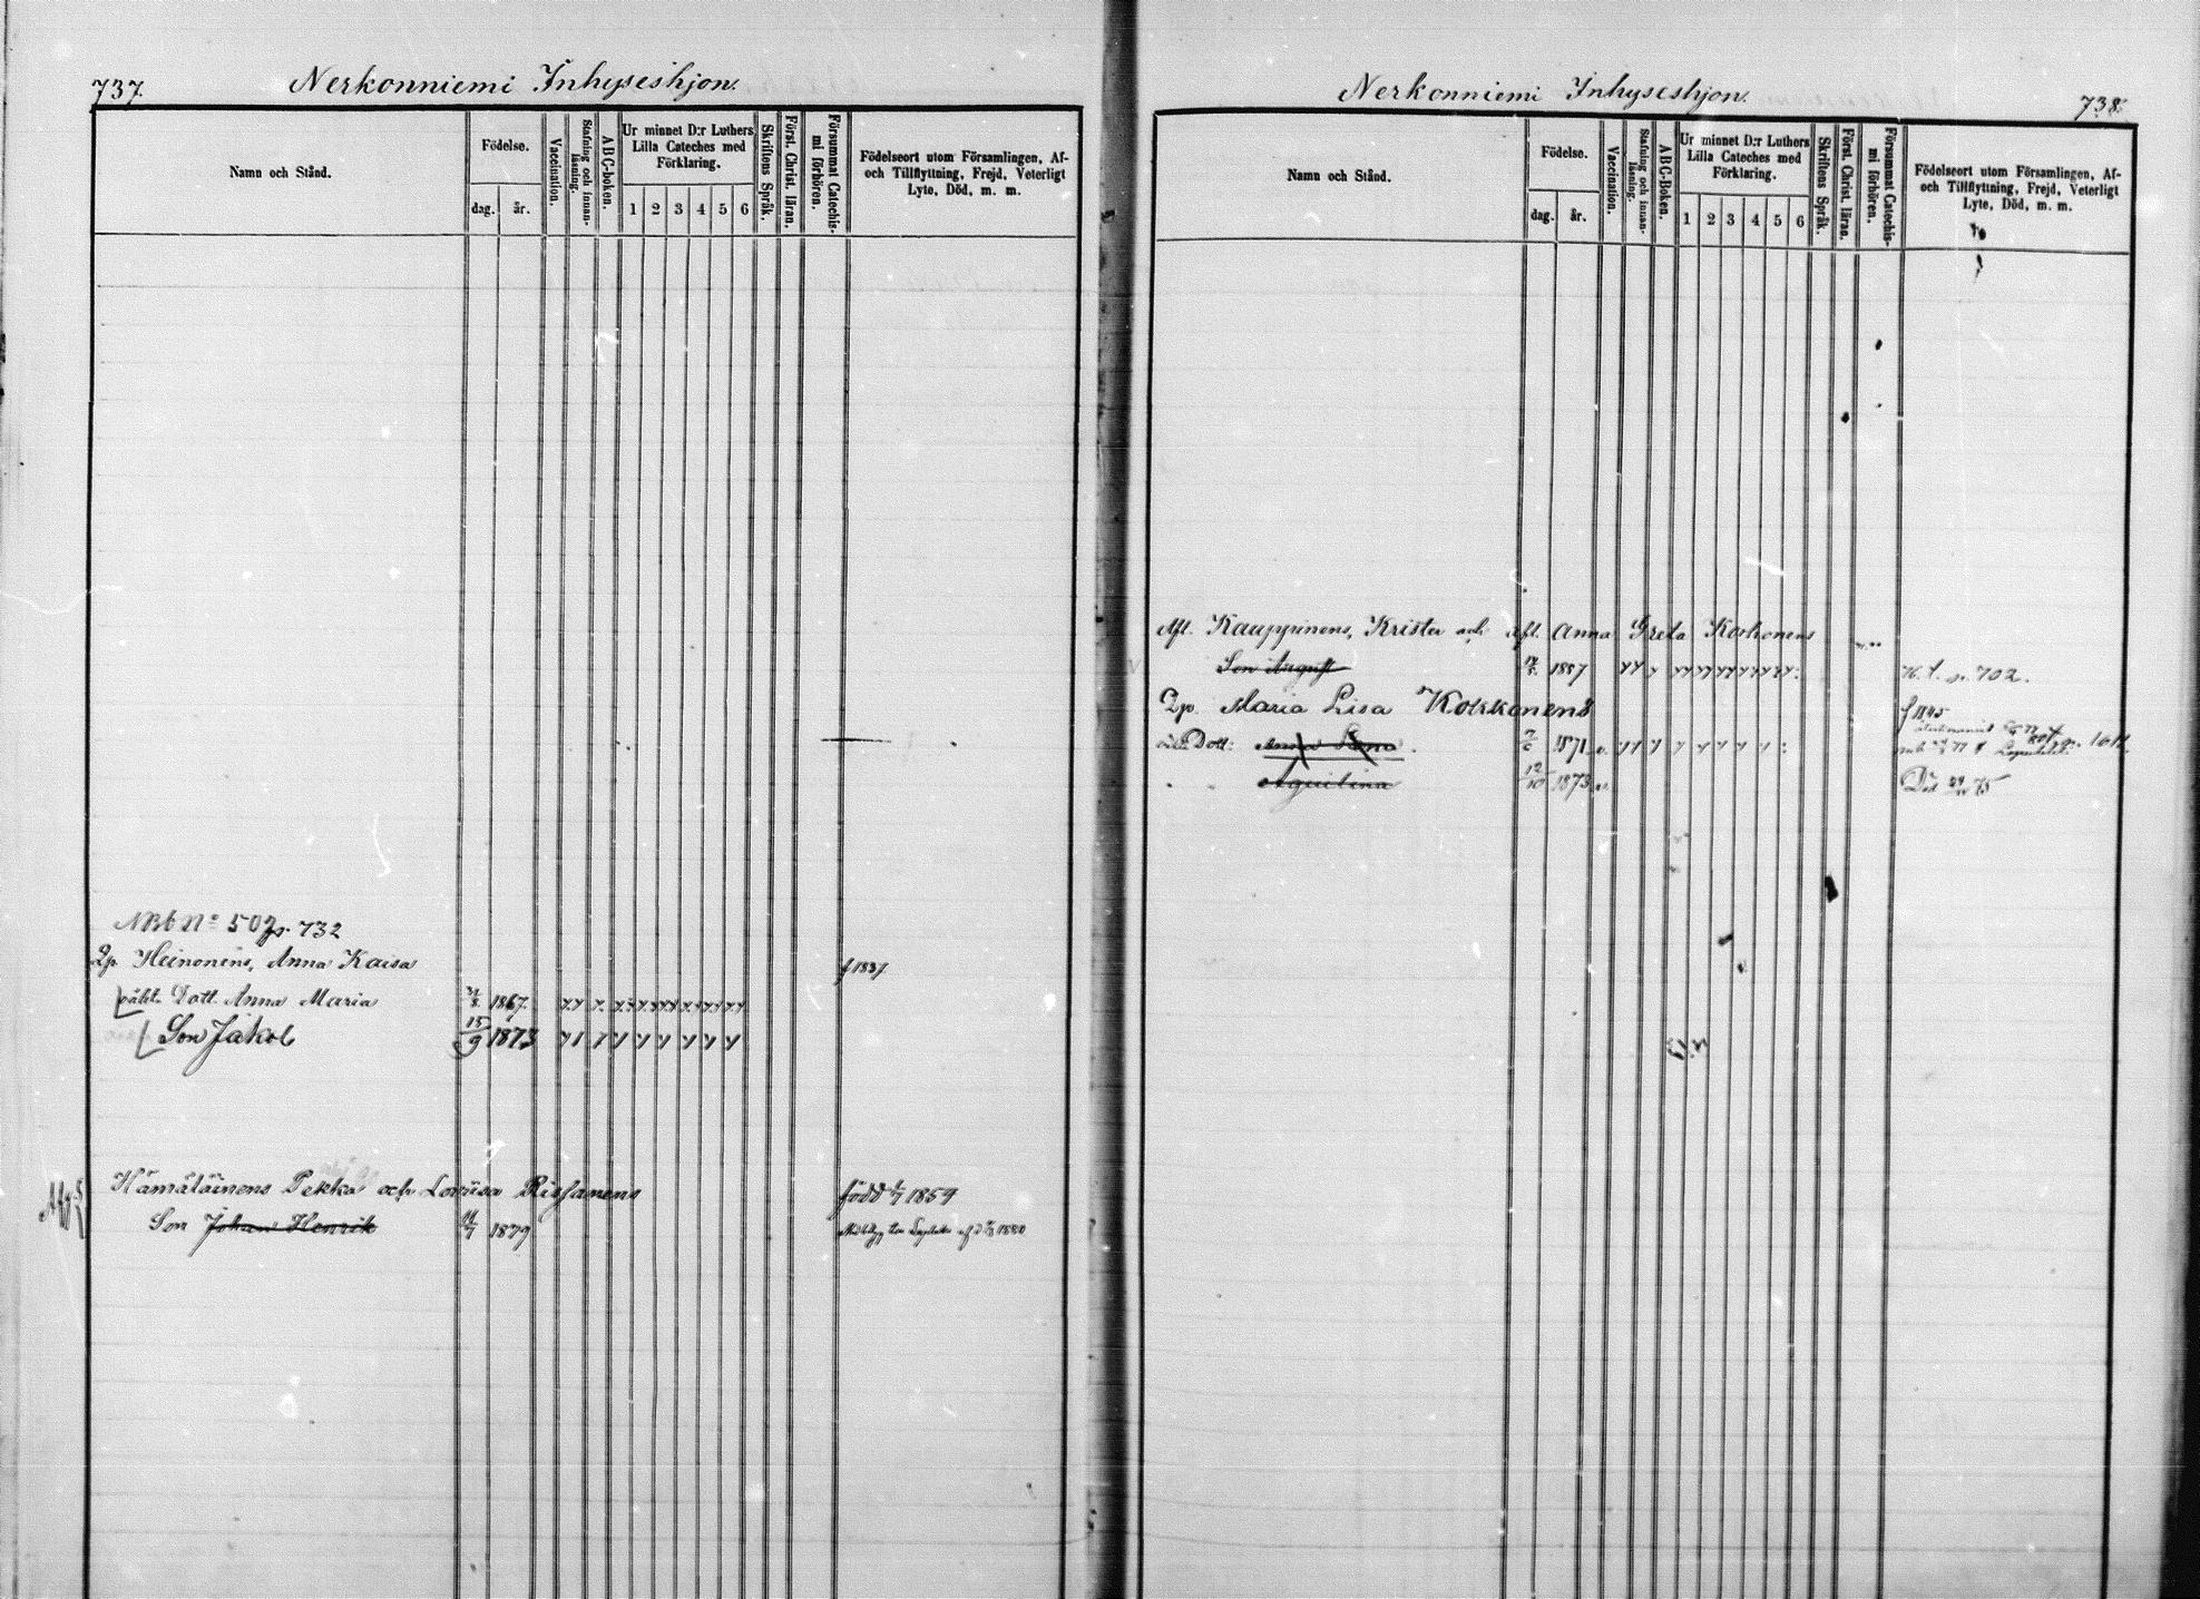 737.
Nerkonniemi Inhyseshjon.
Namn och Stånd.
Födelse.
dag. år.
Vaccination.
Stafning och innanläsning.
ABC-boken.
Ur minnet D:r Luthers Lilla Cateches med Förklaring.
1 2 3 4 5 6
Skriftens Språk.
Först. Christ. läran.
Försummat Catechismi förhören.
Födelseort utom Församlingen, Af- och Tillflyttning, Frejd, Veterligt Lyte, Död, m. m.
No 50 p. 732
Qp. Heinonens, Anna Kaisa f 1837
oäkt. Dott. Anna Maria 1867.
Son Jakob 15/9 1873
Hämäläinens Pekka och Lovisa Rissanens född 1859
Son Johan Henrik 1879 1880
Nerkonniemi Inhyseshjon.
738.
Namn och Stånd.
Födelse.
dag. år.
Vaccination.
Stafning och innanläsning.
ABC-Boken.
Ur minnet D:r Luthers Lilla Cateches med Förklaring.
1 2 3 4 5 6
Skriftens Språk.
Först. Christ. läran.
Försummat Catechismi förhören.
Födelseort utom Församlingen, Af- och Tillflyttning, Frejd, Veterligt Lyte, Död, m. m.
Aft. Kauppinens, Krister och Aft. Anna Greta Korhonens
Son August 1857 p. 702.
Qp. Maria Lisa Kokkonens f 1845
Dott: Anna Lena 1871
Aquilina 12/10 1873 Död 75